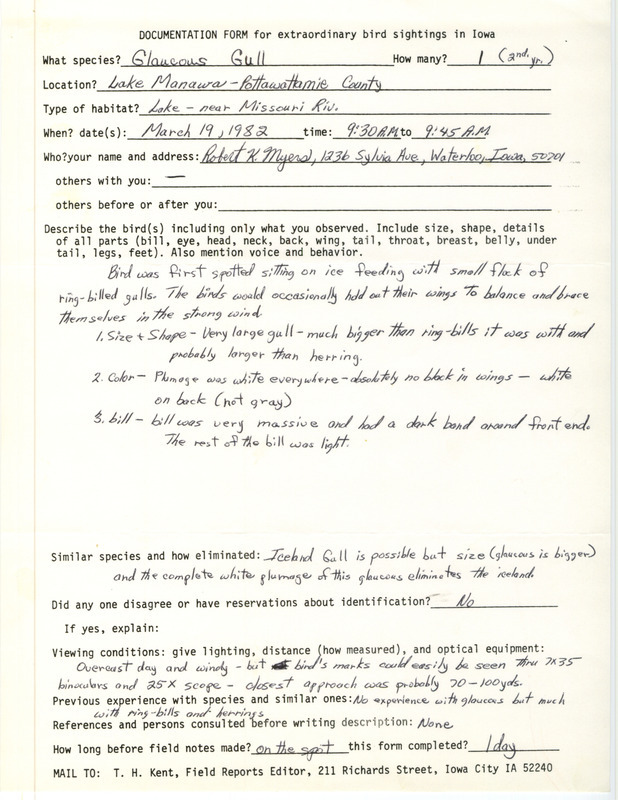 DOCUMENTATION FORM for extraordinary bird sightings in Iowa
What species? Glaucous Gull How many? 1 (2nd. yr.)
Location? Lake Manawa - Pottawattamie County
Type of habitat? Lake - near Missouri Riv.
When? date(s): March 19, 1982 time: 9:30 A.M. to 9:45 A.M
Who? your name and address: Robert K. Myers, 1236 Sylvia Ave., Waterloo, Iowa, 50701
others with you: —
others before or after you:
Describe the bird(s) including only what you observed. Include size, shape, details
of all parts (bill, eye, head, neck, back, wing, tail, throat, breast, belly, under
tail, legs, feet). Also mention voice and behavior.
Bird was first spotted sitting on ice feeding with small flock of
ring-billed gulls. The birds would occasionally hold out their wings to balance and brace
themselves in the strong wind
1. Size + Shape - Very large gull - much bigger than ring-bills it was with and
probably larger than herring.
2. Color - Plumage was white everywhere - absolutely no black in wings - white
on back (not gray)
3. bill - bill was very massive and had a dark band around front end.
The rest of the bill was light.
Similar species and how eliminated: Iceland Gull is possible but size (glaucous is bigger)
and the complete white plumage of this glaucous eliminates the iceland.
Did any one disagree or have reservations about identification? No
If yes, explain:
Viewing conditions: give lighting, distance (how measured), and optical equipment:
Overcast day and windy - but bird's marks could easily be seen thru 7x35
binoculars and 25X scope - closest approach was probably 70-100yds.
Previous experience with species and similar ones: No experience with glaucous but much
with ring-bills and herrings
References and persons consulted before writing description: None
How long before field notes made? on the spot this form completed? 1 day
MAIL TO: T. H. Kent, Field Reports Editor, 211 Richards Street, Iowa City IA 52240